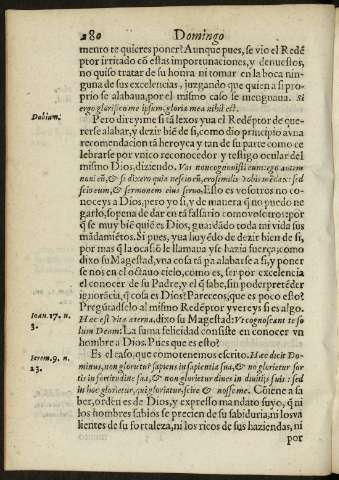 280 Domingo
mento te quieres poner? Aunque pues, se vio el Redẽ
ptor irritado cõ estas importunaciones, y denuestos,
no quiso tratar de su honra ni tomar en la boca nin-
guna de sus excelencias, juzgando que quien a si pro-
prio se alabaua, por el mismo caso se menguaua. Si
ergo glorifico me ipsum, gloria mea nihil est.
Dubium.
Pero direysme si tã lexos yua el Redẽptor de que-
rerse alabar, y dezir biẽ de si, como dio principio a vna
recomendacion tã heroyca y tan de su parte como ce
lebrarse por vnico reconocedor y testigo ocular del
mismo Dios, diziendo. Vos non cognouistis eum: ego autem
noui eũ, & si dixero quia nescio eũ, ero similis vobis mẽdax: sed
scio eum, & sermonem eius seruo. Esto es vosotros no co-
noceys a Dios, pero yo si, y de manera q̃ no puedo ne
garlo, sopena de dar en tã falsario como vosotros: por
q̃ se muy biẽ quiẽ es Dios, guardãdo toda mi vida sus
mãdamiẽtos. Si pues, yua huyẽdo de dezir bien de si,
por mas q̃ la ocasiõ le llamaua y le hazia fuerça; como
dixo su Magestad, vna cosa tã pa alabarse a si, y poner
se nos en el octauo cielo, como es, ser por excelencia
el conocer de su Padre, y el q̃ sabe, sin poder pretẽder
ignorãcia, q̃ cosa es Dios? Pareceos, que es poco esto?
Pregũtadselo al mismo Redẽptor y vereys si es algo.
Ioan. 17. n.
3.
Hæc est vita æterna, dixo su Magestad: Vt cognoscant te so
lum Deum: La suma felicidad consiste en conocer vn
hombre a Dios. Pues que es esto?
Ierem. 9. n.
23.
Es el caso que como tenemos escrito. Hæc dicit Do-
minus, non glorietur sapiens in sapientia sua, & non glorietur for
tis in fortitudine sua, & non glorietur diues in diuitijs suis: sed
in hoc glorietur, qui gloriatur, scire & nosse me. Cõuiene a sa
ber, orden es de Dios, y expresso mandato suyo, q̃ ni
los hombres sabios se precien de su sabiduria, ni los va
lientes de su fortaleza, ni los ricos de sus haziendas, ni
por